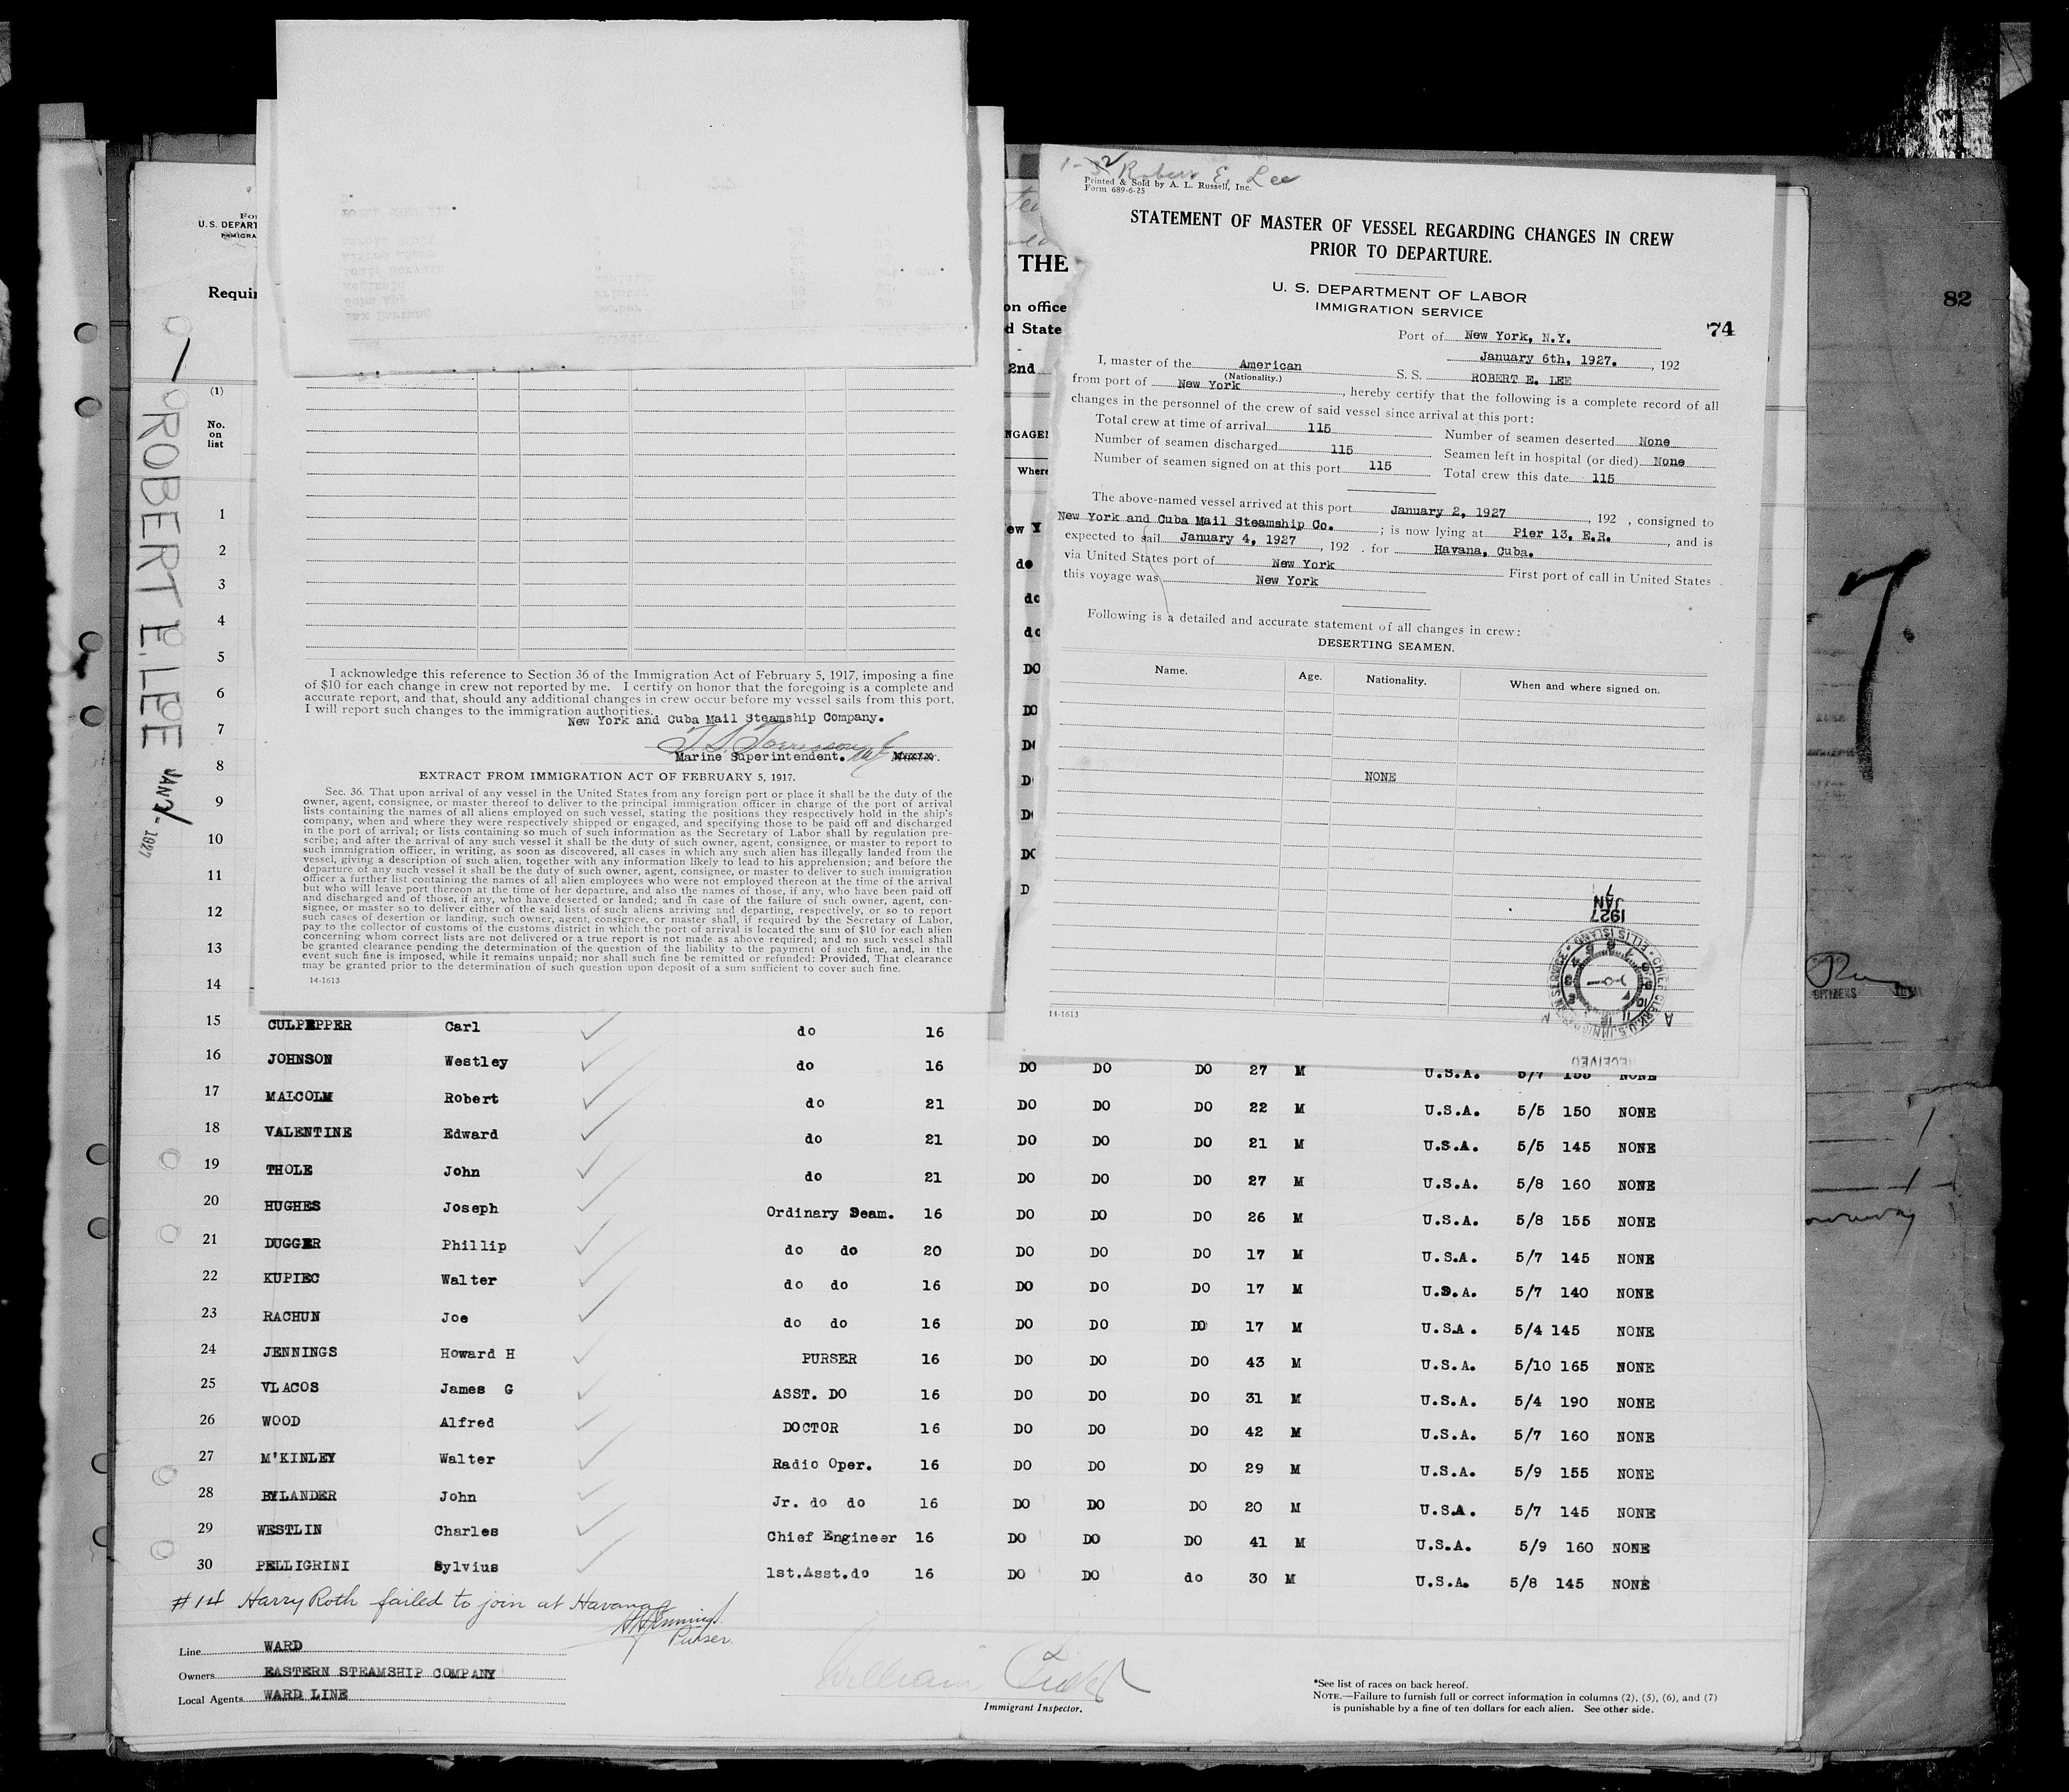 1-3 2 Robert E. Lee
Printed & Sold by A. L. Russell, Inc.
Form 689-6-25
STATEMENT OF MASTER OF VESSEL REGARDING CHANGES IN CREW
PRIOR TO DEPARTURE.
U. S. DEPARTMENT OF LABOR
IMMIGRATION SERVICE
74
82
Port of New York, N.Y.
January 6th, 1927. , 192
I, master of the American S. S. ROBERT E. LEE
(Nationality.)
from port of New York , hereby certify that the following is a complete record of all
changes in the personnel of the crew of said vessel since arrival at this port:
Total crew at time of arrival 115 Number of seamen deserted None
Number of seamen discharged 115 Seamen left in hospital (or died) None
Number of seamen signed on at this port 115 Total crew this date 115
The above-named vessel arrived at this port January 2, 1927 , 192 , consigned to
New York and Cuba Mail Steamship Co. ; is now lying at Pier 13, E.R. , and is
expected to sail January 4, 1927 , 192 . for Havana, Cuba.
via United States port of New York First port of call in United States
this voyage was New York
Following is a detailed and accurate statement of all changes in crew:
DESERTING SEAMEN.
Name. Age. Nationality. When and where signed on.
NONE
1927
JAN
7
14-1613
For
U. S. DEPART
IMMIGRA
Requir
THE
on office
d State
2nd
NGAGE
Where
ew Y
do
do
do
DO
DO
DO
D
DO
DO
D
(1)
No.
on
list
ROBERT E. LEE JAN 2 - 1927
1
2
3
4
5
6
7
8
9
10
11
12
13
14
I acknowledge this reference to Section 36 of the Immigration Act of February 5, 1917, imposing a fine
of $10 for each change in crew not reported by me. I certify on honor that the foregoing is a complete and
accurate report, and that, should any additional changes in crew occur before my vessel sails from this port,
I will report such changes to the immigration authorities.
New York and Cuba Mail Steamship Company.
Marine Superintendent.
EXTRACT FROM IMMIGRATION ACT OF FEBRUARY 5, 1917.
Sec. 36. That upon arrival of any vessel in the United States from any foreign port or place it shall be the duty of the
owner, agent, consignee, or master thereof to deliver to the principal immigration officer in charge of the port of arrival
lists containing the names of all aliens employed on such vessel, stating the positions they respectively hold in the ship's
company, when and where they were respectively shipped or engaged, and specifying those to be paid off and discharged
in the port of arrival; or lists containing so much of such information as the Secretary of Labor shall by regulation pre-
scribe; and after the arrival of any such vessel it shall be the duty of such owner, agent, consignee, or master to report to
such immigration officer, in writing, as soon as discovered, all cases in which any such alien has illegally landed from the
vessel, giving a description of such alien, together with any information likely to lead to his apprehension; and before the
departure of any such vessel it shall be the duty of such owner, agent, consignee, or master to deliver to such immigration
officer a further list containing the names of all alien employees who were not employed thereon at the time of the arrival
but who will leave port thereon at the time of her departure, and also the names of those, if any, who have been paid off
and discharged and of those, if any, who have deserted or landed; and in case of the failure of such owner, agent, con-
signee, or master so to deliver either of the said lists of such aliens arriving and departing, respectively, or so to report
such cases of desertion or landing, such owner, agent, consignee, or master shall, if required by the Secretary of Labor,
pay to the collector of customs of the customs district in which the port of arrival is located the sum of $10 for each alien
concerning whom correct lists are not delivered or a true report is not made as above required; and no such vessel shall
be granted clearance pending the determination of the question of the liability to the payment of such fine, and, in the
event such fine is imposed, while it remains unpaid; nor shall such fine be remitted or refunded: Provided, That clearance
may be granted prior to the determination of such question upon deposit of a sum sufficient to cover such fine.
14-1613
15 CULPEPPER Carl do 16
16 JOHNSON Westley do 16 DO DO DO 27 M U.S.A. 5/7 155 NONE
17 MALCOLM Robert do 21 DO DO DO 22 M U.S.A. 5/5 150 NONE
18 VALENTINE Edward do 21 DO DO DO 21 M U.S.A. 5/5 145 NONE
19 THOLE John do 21 DO DO DO 27 M U.S.A. 5/8 160 NONE
20 HUGHES Joseph Ordinary Seam. 16 DO DO DO 26 M U.S.A. 5/8 155 NONE
21 DUGGER Phillip do do 20 DO DO DO 17 M U.S.A. 5/7 145 NONE
22 KUPIEC Walter do do 16 DO DO DO 17 M U.S.A. 5/7 140 NONE
23 RACHUN Joe do do 16 DO DO DO 17 M U.S.A. 5/4 145 NONE
24 JENNINGS Howard H PURSER 16 DO DO DO 43 M U.S.A. 5/10 165 NONE
25 VLACOS James G ASST. DO 16 DO DO DO 31 M U.S.A. 5/4 190 NONE
26 WOOD Alfred DOCTOR 16 DO DO DO 42 M U.S.A. 5/7 160 NONE
27 M'KINLEY Walter Radio Oper. 16 DO DO DO 29 M U.S.A. 5/9 155 NONE
28 BYLANDER John Jr. do do 16 DO DO DO 20 M U.S.A. 5/7 145 NONE
29 WESTLIN Charles Chief Engineer 16 DO DO DO 41 M U.S.A. 5/9 160 NONE
30 PELLIGRINI Sylvius 1st.Asst.do 16 DO DO do 30 M U.S.A. 5/8 145 NONE
#14 Harry Roth failed to join at Havana
Purser.
Line WARD
Owners EASTERN STEAMSHIP COMPANY
Local Agents WARD LINE
William
Immigrant Inspector.
*See list of races on back hereof.
NOTE.—Failure to furnish full or correct information in columns (2), (5), (6), and (7)
is punishable by a fine of ten dollars for each alien. See other side.